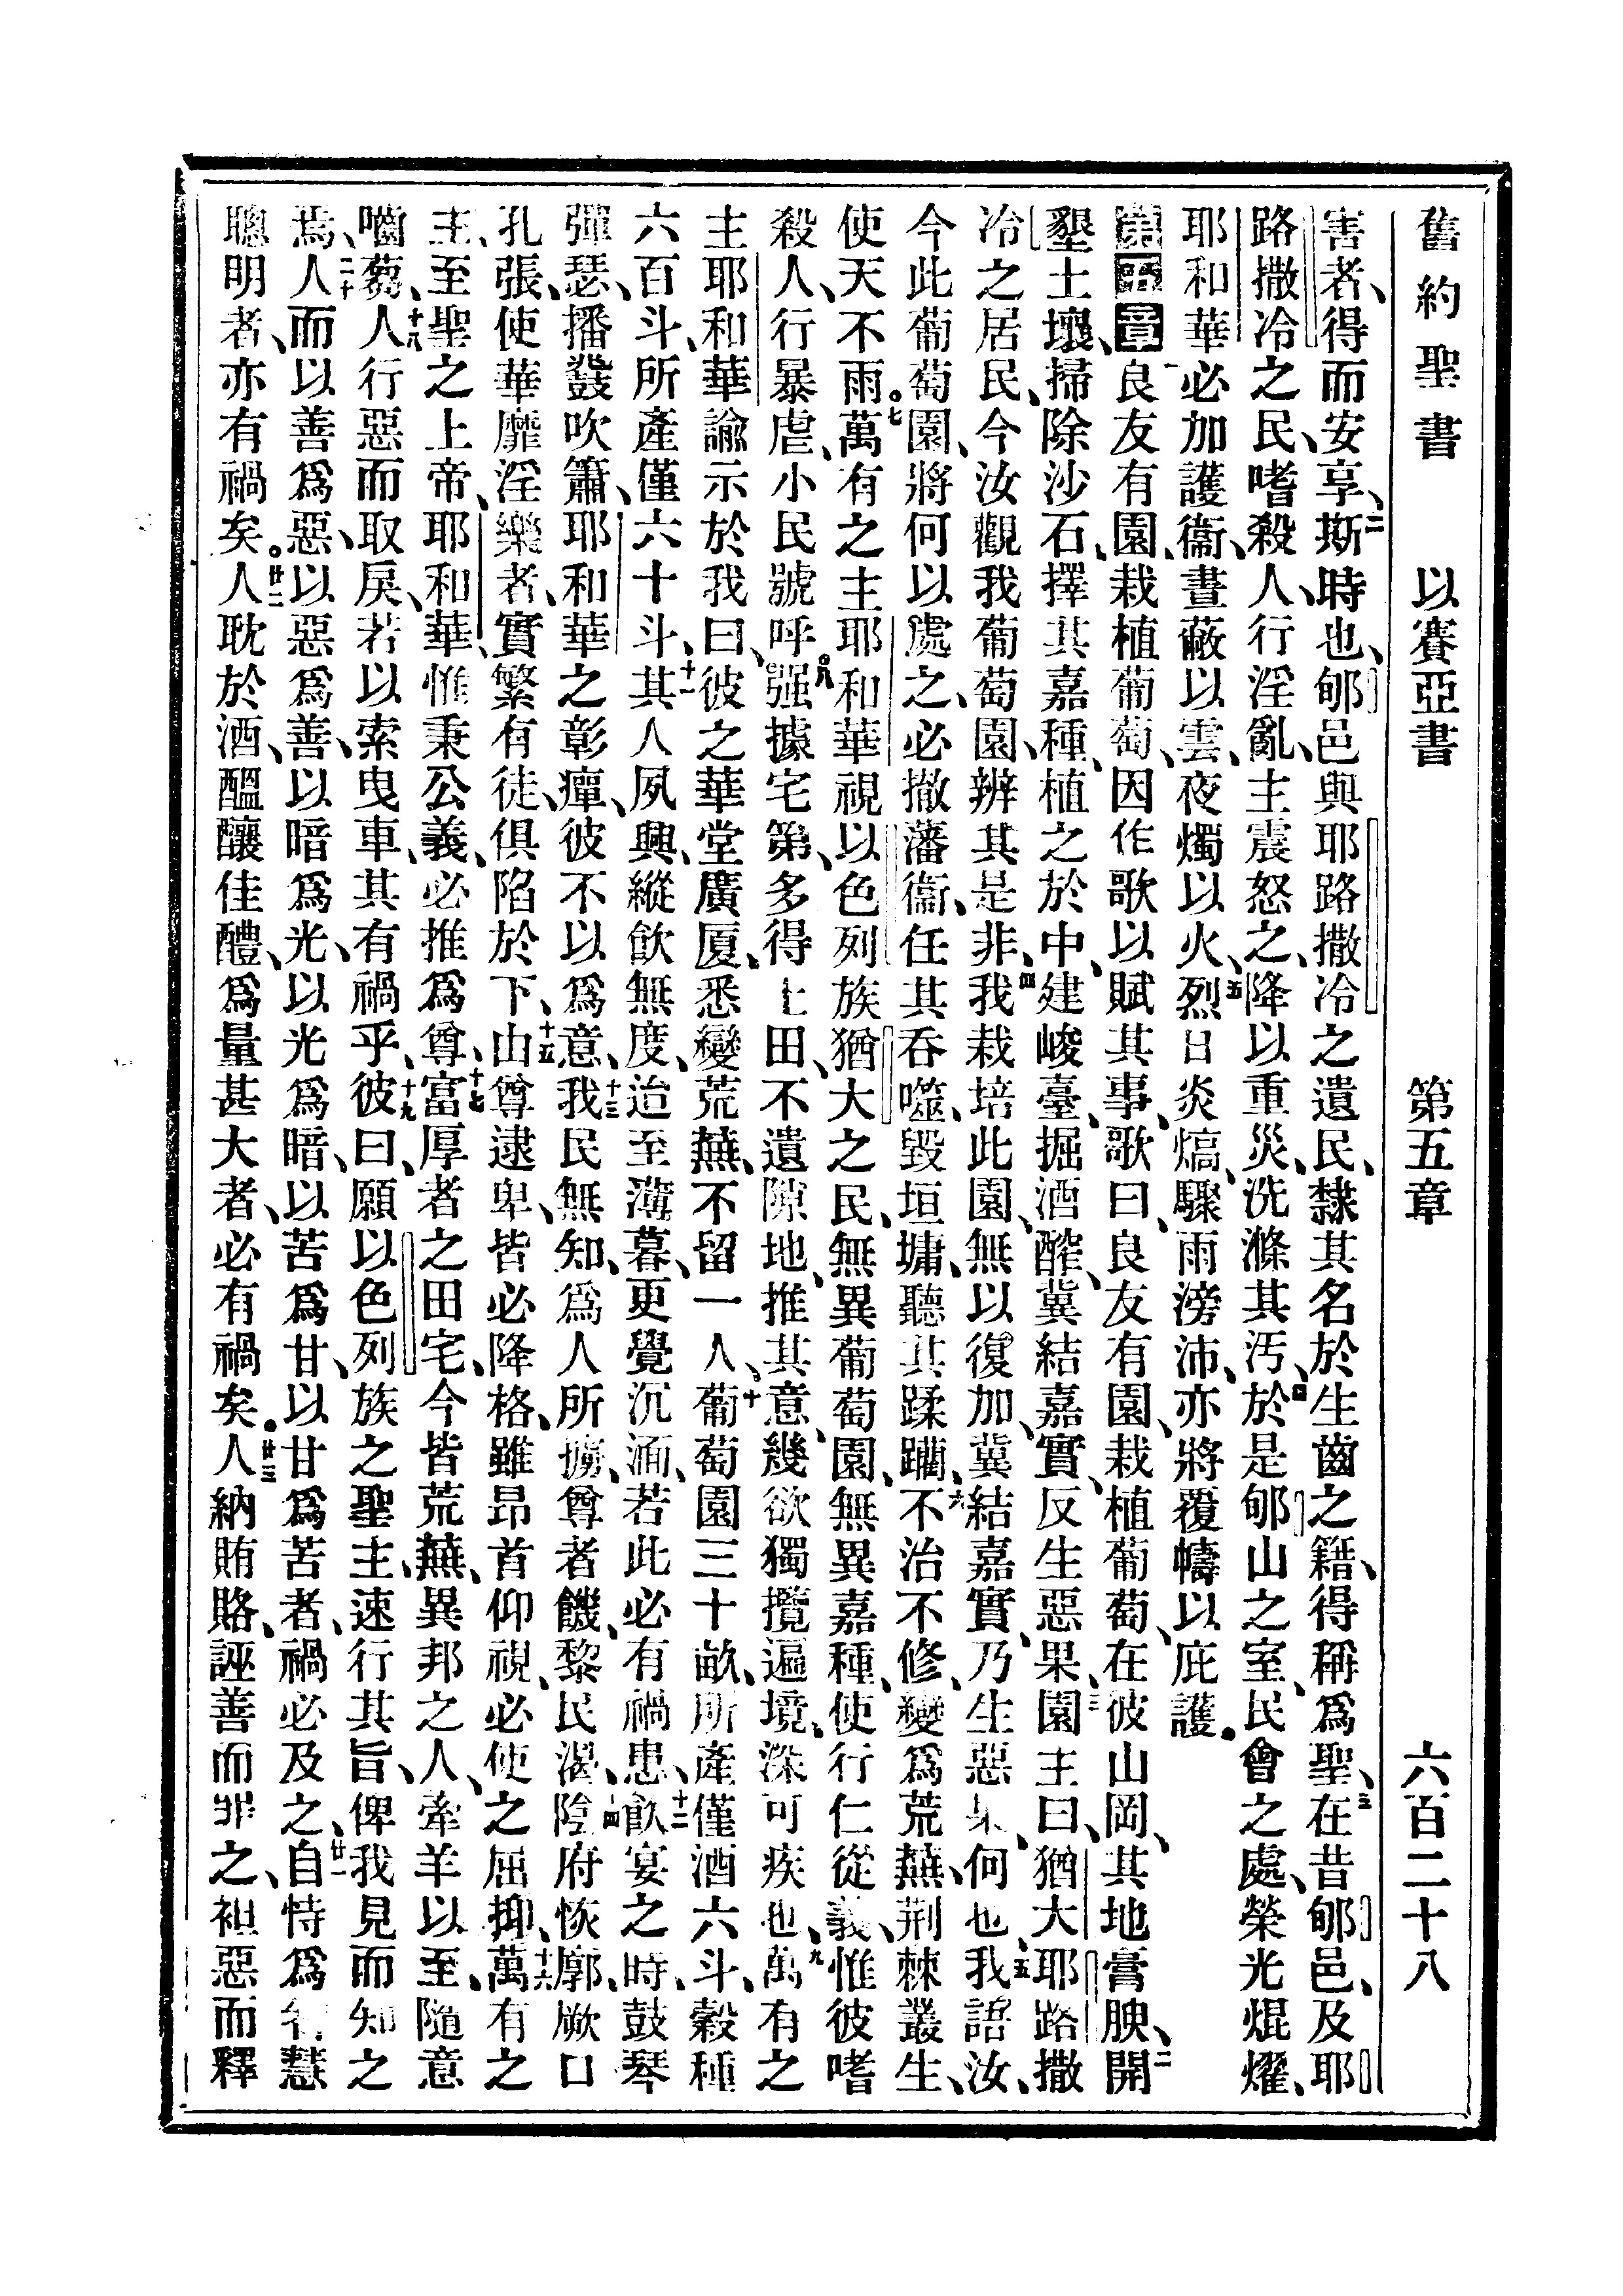 舊約聖書 以賽亞書 第五章 六百二十八
害者、得而安享、二斯時也、郇邑與耶路撒冷之遺民、隸其名於生齒之籍、得稱爲聖、三在昔郇邑、及耶
路撒冷之民、嗜殺人、行淫亂、主震怒之、降以重災、洗滌其汚、四於是郇山之室、民會之處、榮光焜燿、
耶和華必加護衞、晝蔽以雲、夜燭以火、五烈日炎熇、驟雨滂沛、亦將覆幬以庇護。
第五章一良友有園、栽植葡萄、因作歌以賦其事、歌曰、良友有園、栽植葡萄、在彼山岡、其地膏腴、二開
墾土壤、掃除沙石、擇其嘉種、植之於中、建峻臺、掘酒醡、冀結嘉實、反生惡果、三園主曰、猶大耶路撒
冷之居民、今汝觀我葡萄園、辨其是非、四我栽培此園、無以復加、冀結嘉實、乃生惡果、何也、五我語汝、
今此葡萄園、將何以處之、必撤藩衞、任其吞噬、毀垣墉、聽其蹂躪、六不治不修、變爲荒蕪、荆棘叢生、
使天不雨。七萬有之主耶和華視以色列族猶大之民、無異葡萄園、無異嘉種、使行仁從義、惟彼嗜
殺人、行暴虐、小民號呼。八强據宅第、多得土田、不遺隙地、推其意、幾欲獨攬遍境、深可疾也、九萬有之
主耶和華諭示於我曰、彼之華堂廣厦、悉變荒蕪、不留一人、十葡萄園三十畝、所產僅酒六斗、穀種
六百斗、所產僅六十斗、十一其人夙興、縱飮無度、迨至薄暮、更覺沉湎、若此必有禍患、十二飮宴之時、鼓琴
彈瑟、播鼗吹簫、耶和華之彰癉、彼不以爲意、十三我民無知、爲人所擄、尊者饑、黎民渴、十四陰府恢廓、厥口
孔張、使華靡淫樂者、實繁有徒、俱陷於下、十五由尊逮卑、皆必降格、雖昂首仰視、必使之屈抑、十六萬有之
主、至聖之上帝、耶和華、惟秉公義、必推爲尊、十七富厚者之田宅、今皆荒蕪、異邦之人、牽羊以至、隨意
嚙蒭、十八人行惡而取戾、若以索曳車、其有禍乎、十九彼曰、願以色列族之聖主、速行其旨、俾我見而知之
焉、二十人而以善爲惡、以惡爲善、以暗爲光、以光爲暗、以苦爲甘、以甘爲苦者、禍必及之、廿一自恃爲智慧
聰明者、亦有禍矣。廿二人耽於酒、醞釀佳醴、爲量甚大者、必有禍矣。廿三人納賄賂、誣善而罪之、袒惡而釋